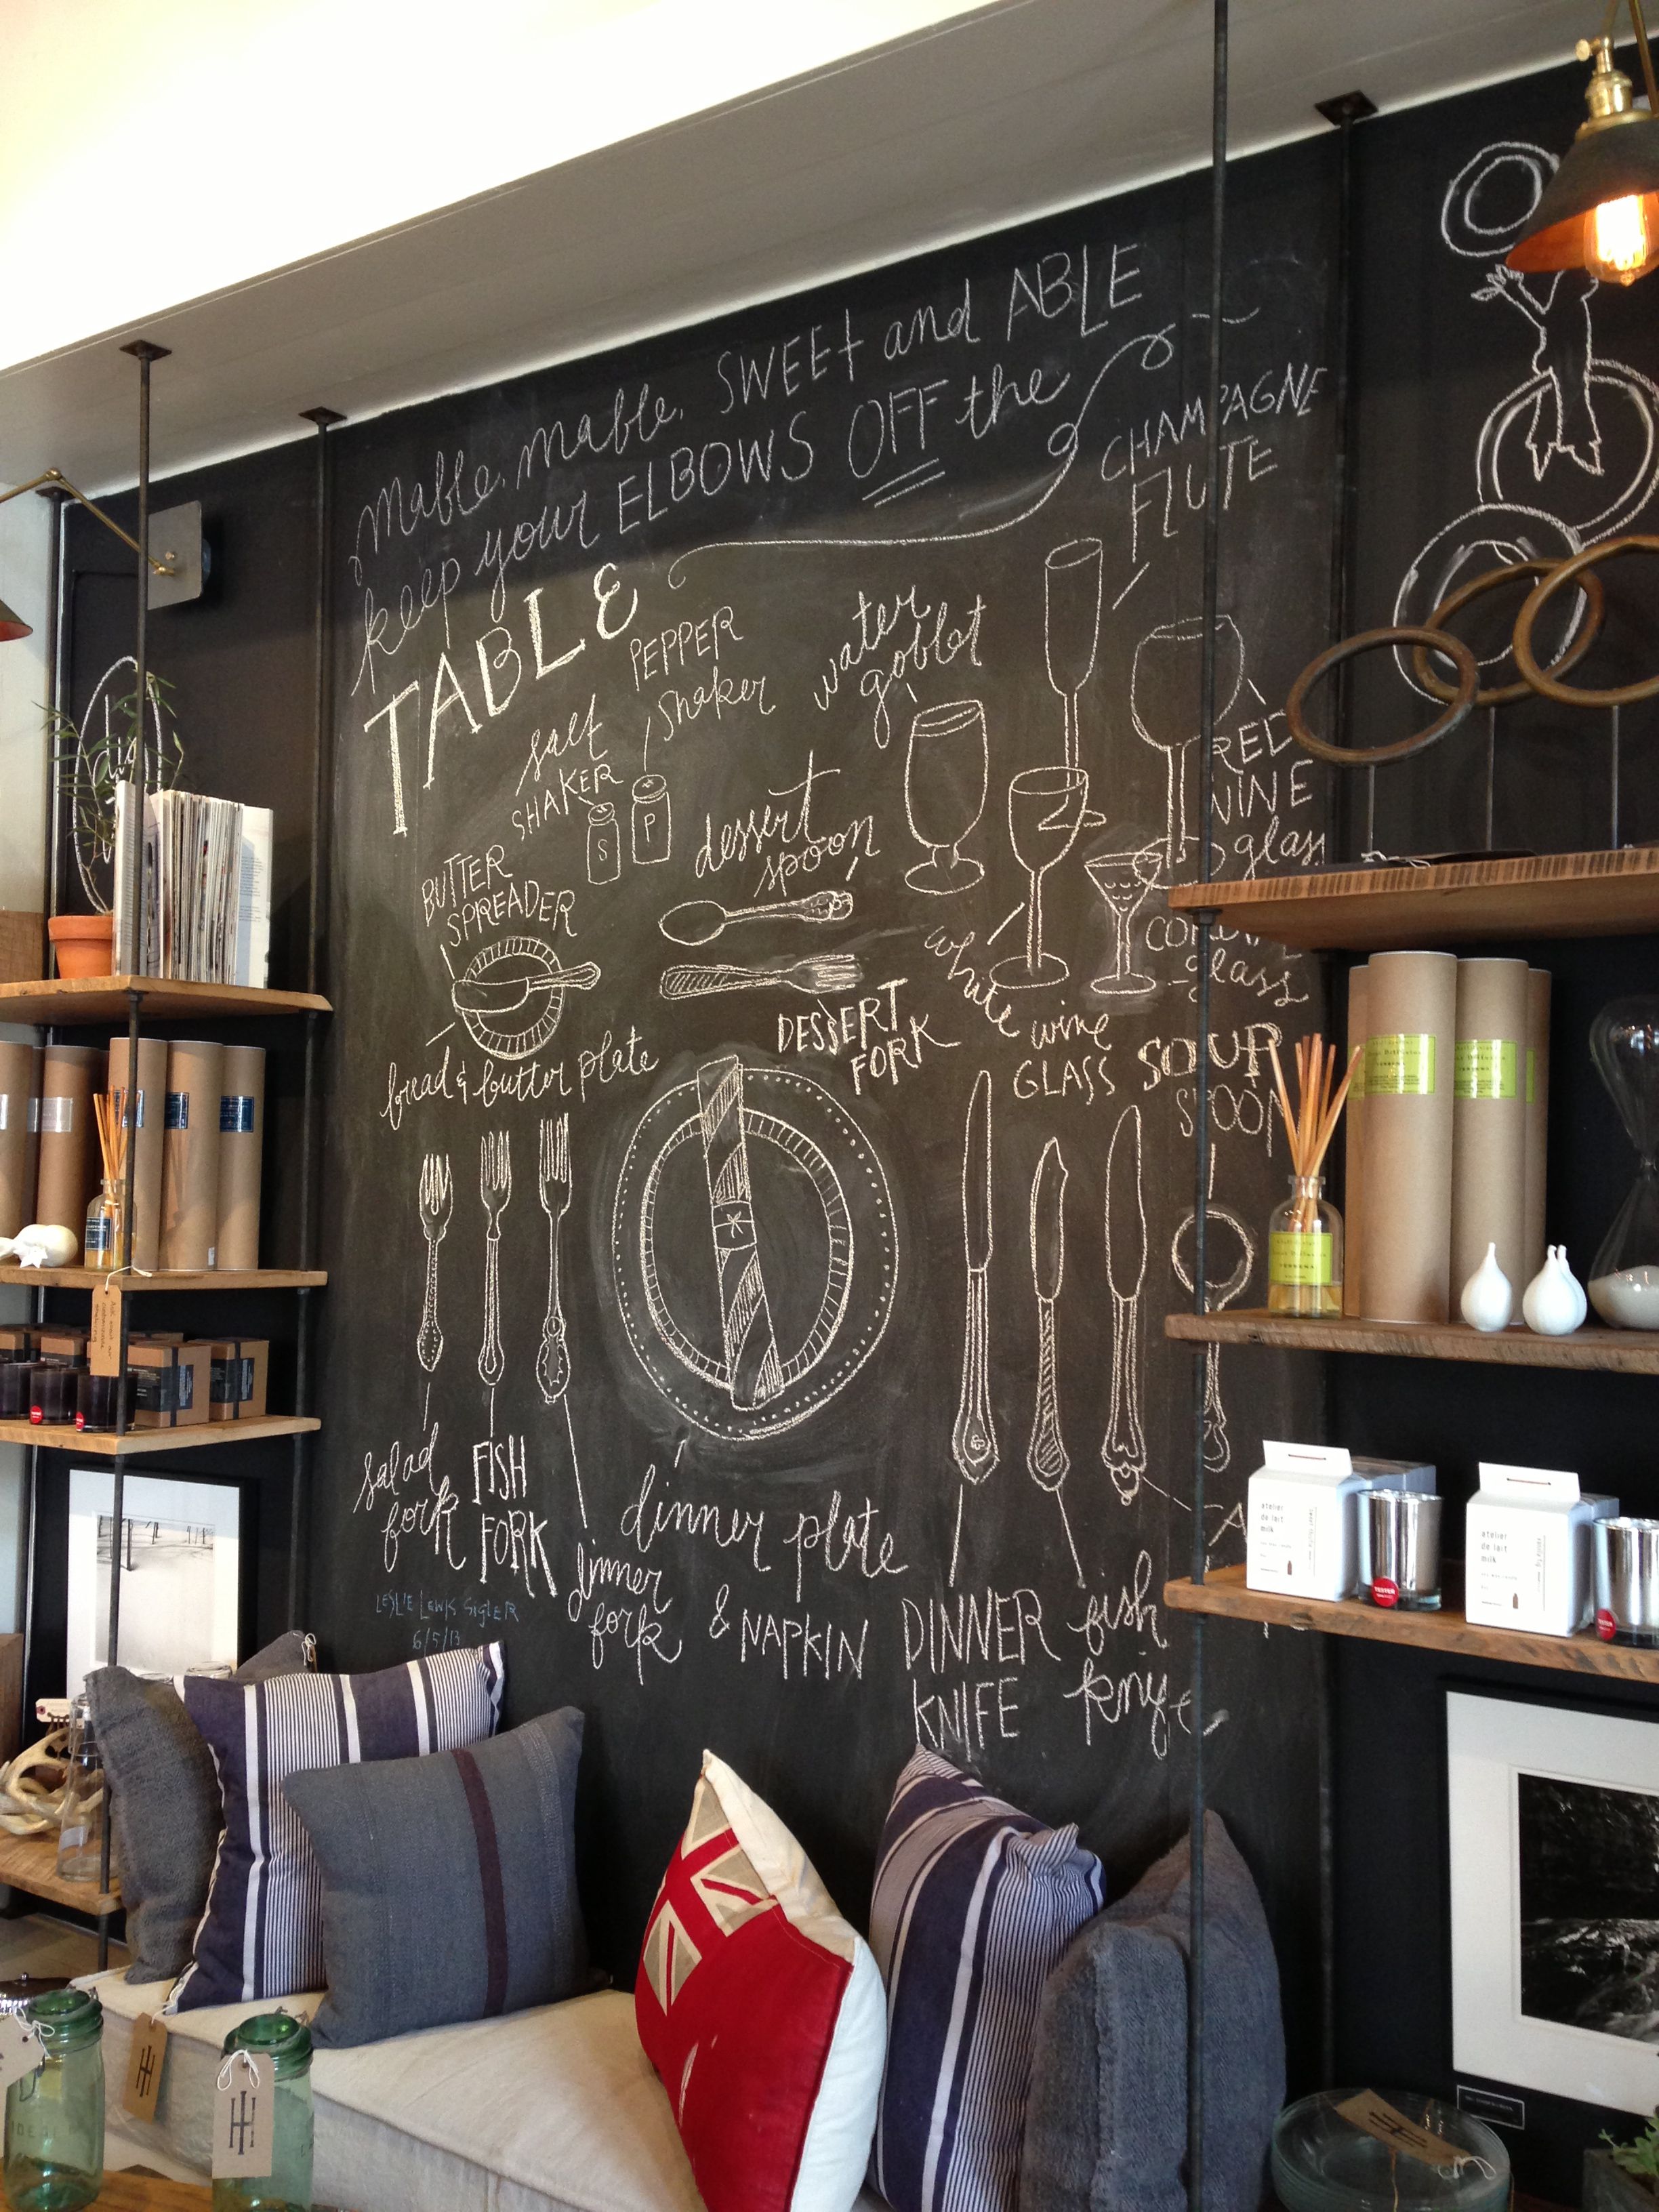 mable, mable, SWEEt and ABLE
keep your ELBOWS OFF the
TABLE
CHAMPAGNE
FLUTE
PEPPER
shaker
water
goblet
salt
SHAKER
S
P
RED
WINE
glass
dessert
spoon
BUTTER
SPREADER
white wine
GLASS
glass
DESSERT
FORK
bread & butter plate
SOUP
SPOON
salad
fork
FISH
FORK
dinner
fork
dinner plate
& NAPKIN
DINNER
KNIFE
fish
knife
LESLIE LEWIS SIGLER
6/5/13
atelier
de lait
milk
TESTER
atelier
de lait
milk